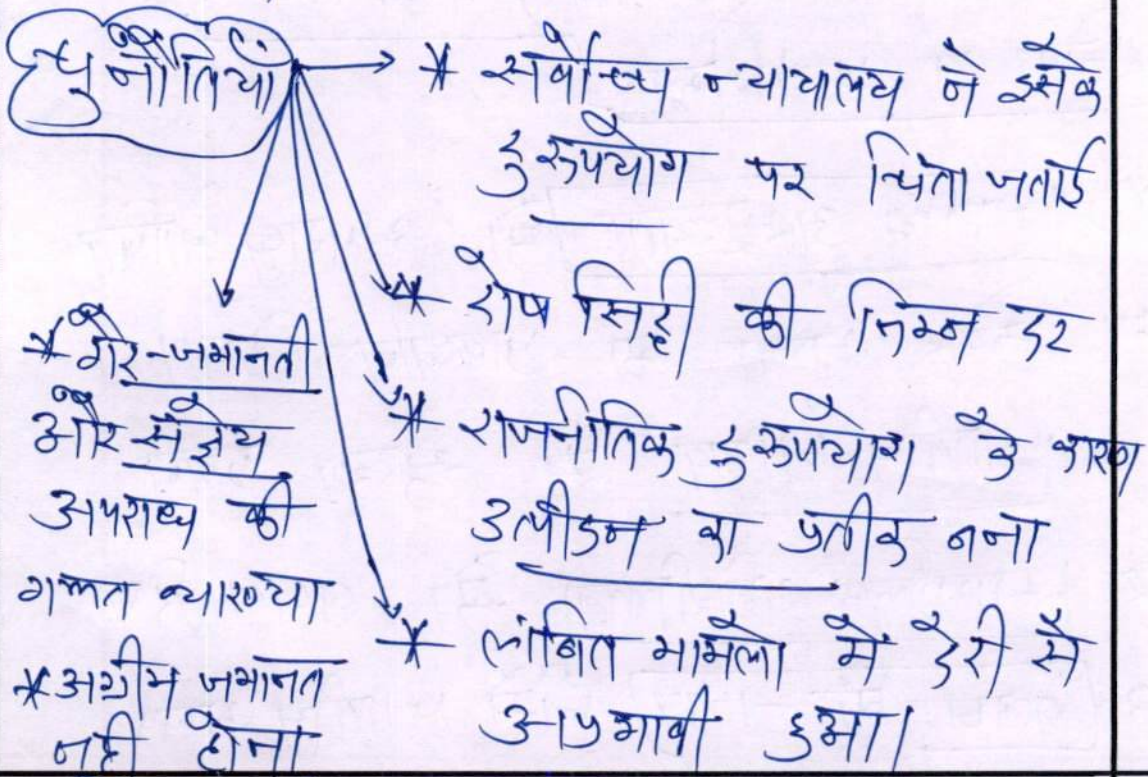 चुनौतियाँ
* सर्वोच्च न्यायालय ने इसके
दुरुपयोग पर चिंता जताई
* दोष सिद्दी की निम्न दर
* राजनीतिक दुरुपयोग के कारण
उत्पीडन का प्रतीक बना
* लंबित मामलो में देरी से
अप्रभावी हुआ।
* गैर-जमानती
और संज्ञेय
अपराध की
गलत व्याख्या
* अग्रीम जमानत
नही होना